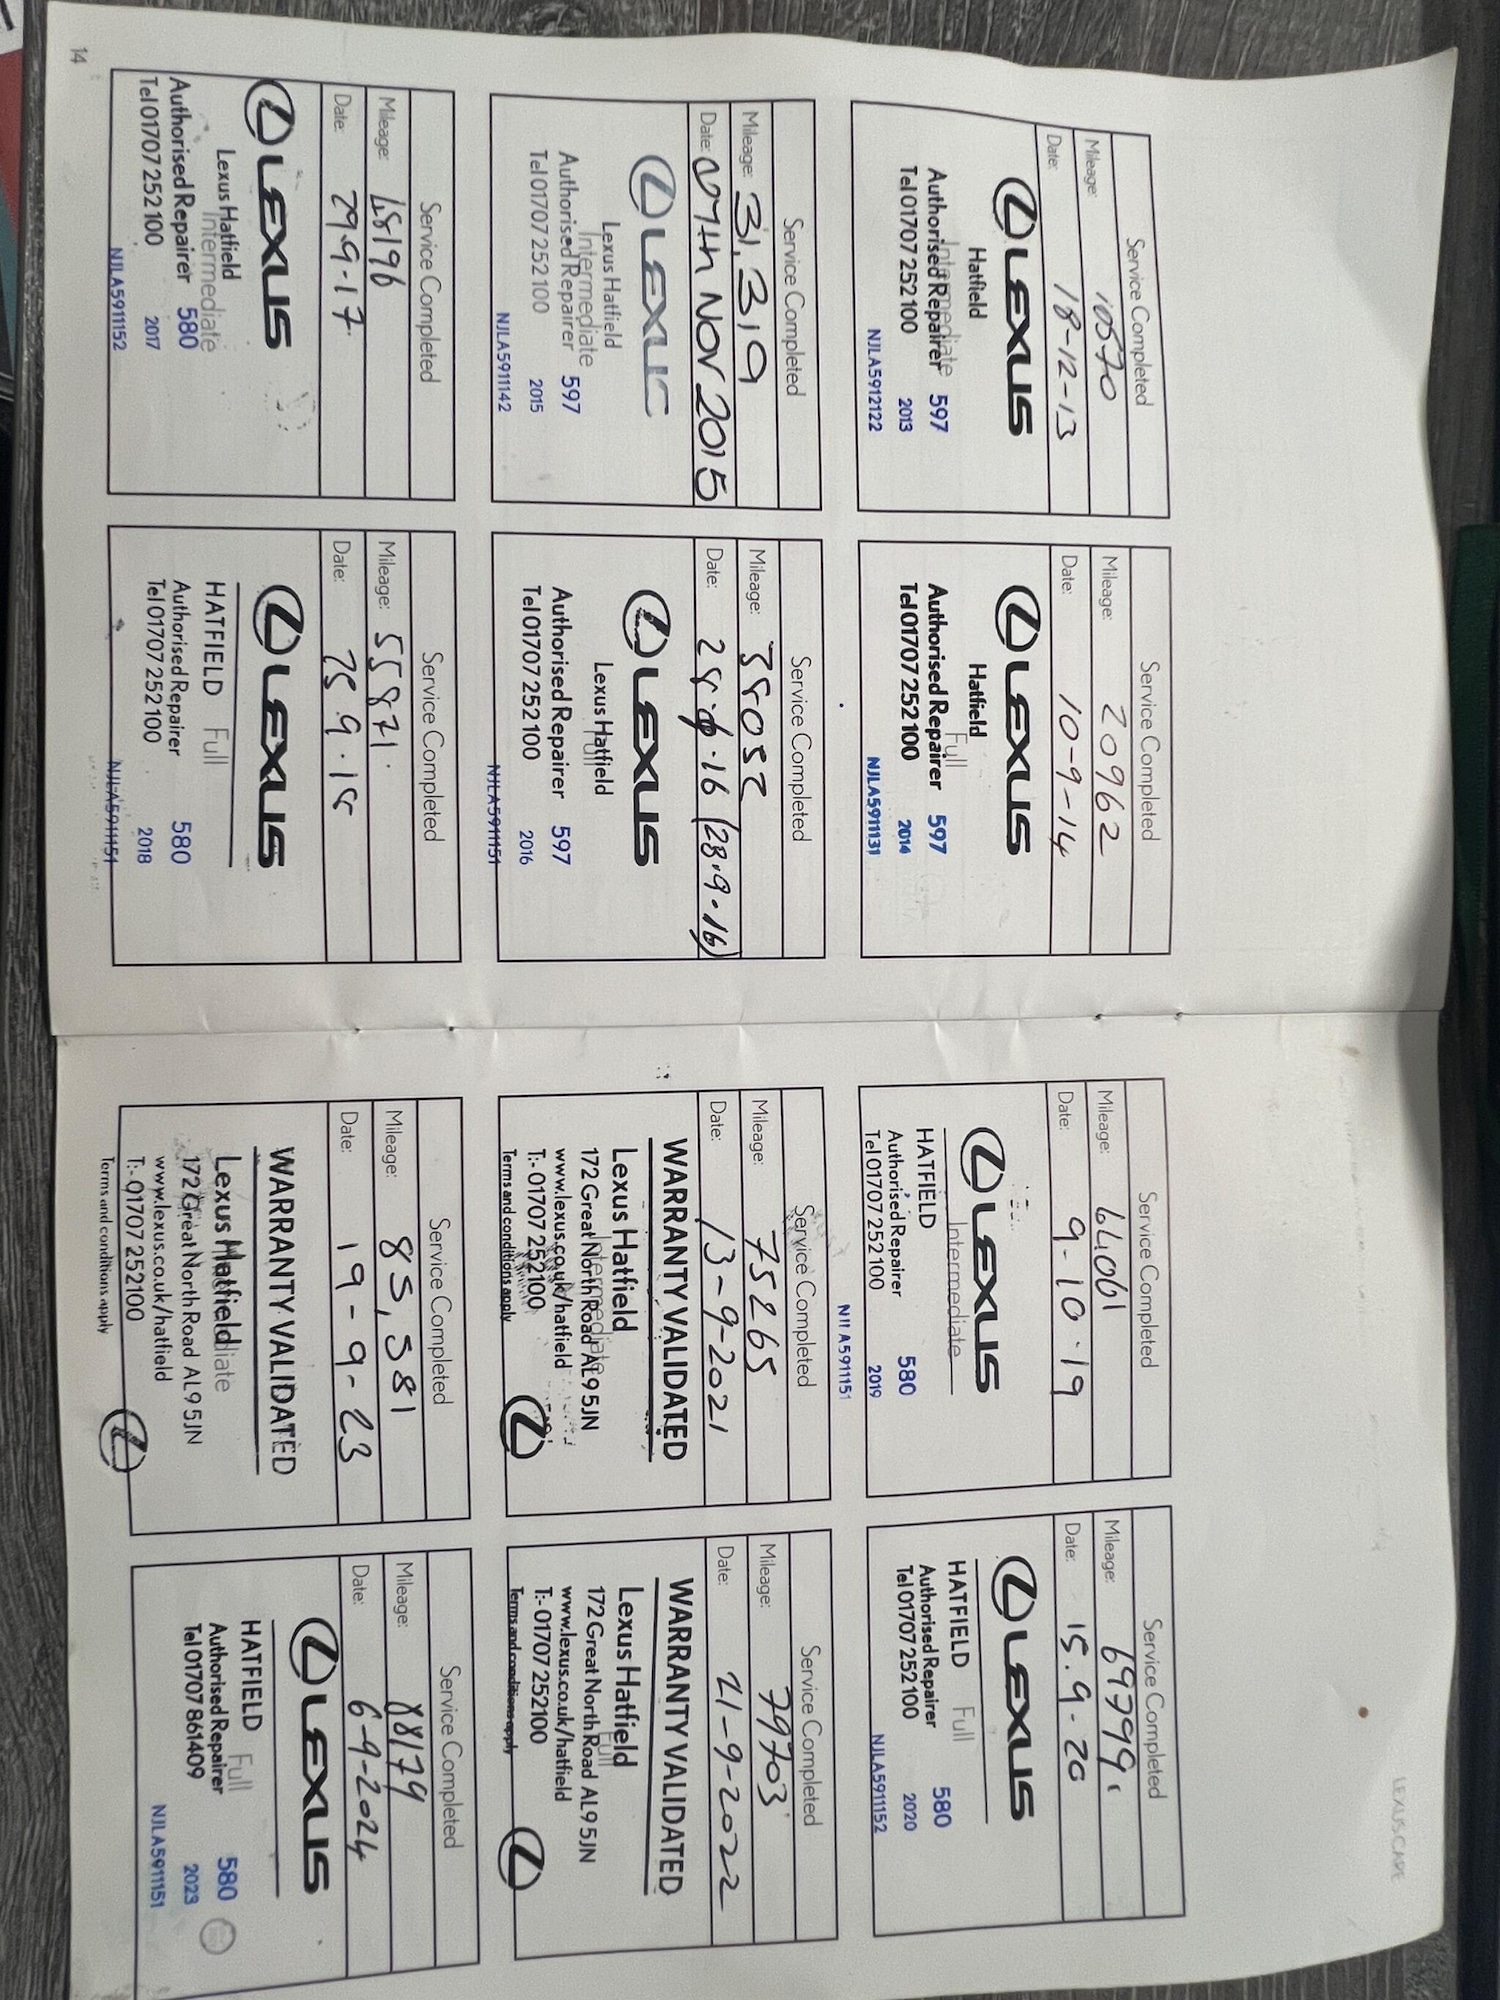 LEXUS CARE
Service Completed
Mileage: 10570
Date: 18-12-13
LEXUS
Hatfield
Intermediate
Authorised Repairer 597
Tel 01707 252 100 2013
NJLA5912122
Service Completed
Mileage: 20962
Date: 10-9-14
LEXUS
Hatfield
Full
Authorised Repairer 597
Tel 01707 252 100 2014
NJLA5911131
Service Completed
Mileage: 31,319
Date: 07th NOV 2015
LEXUS
Lexus Hatfield
Intermediate
Authorised Repairer 597
Tel 01707 252 100 2015
NJLA5911142
Service Completed
Mileage: 38052
Date: 28.9.16 (28.9.16)
LEXUS
Lexus Hatfield
Full
Authorised Repairer 597
Tel 01707 252 100 2016
NJLA5911151
Service Completed
Mileage: 48196
Date: 29.9-17.
LEXUS
Lexus Hatfield
Intermediate
Authorised Repairer 580
Tel 01707 252 100 2017
NJLA5911152
Service Completed
Mileage: 55871.
Date: 25.9.18
LEXUS
HATFIELD Full
Authorised Repairer 580
Tel 01707 252 100 2018
NJLA5911151
14
Service Completed
Mileage: 64061
Date: 9-10.19
LEXUS
Intermediate
HATFIELD
Authorised Repairer 580
Tel 01707 252 100 2019
NJLA5911151
Service Completed
Mileage: 69799
Date: 15.9-20
LEXUS
HATFIELD Full
Authorised Repairer 580
Tel 01707 252 100 2020
NJLA5911152
Service Completed
Mileage: 75265
Date: 13-9-2021
WARRANTY VALIDATED
Lexus Hatfield
Intermediate
172 Great North Road AL9 5JN
www.lexus.co.uk/hatfield
T:- 01707 252100
Terms and conditions apply
Service Completed
Mileage: 79703
Date: 21-9-2022
WARRANTY VALIDATED
Lexus Hatfield
Full
172 Great North Road AL9 5JN
www.lexus.co.uk/hatfield
T:- 01707 252100
Terms and conditions apply
Service Completed
Mileage: 85,581
Date: 19-9-23
WARRANTY VALIDATED
Lexus Hatfield
172 Great North Road AL9 5JN
www.lexus.co.uk/hatfield
T:- 01707 252100
Terms and conditions apply
Service Completed
Mileage: 88179
Date: 6-9-2024
LEXUS
HATFIELD Full
Authorised Repairer 580
Tel 01707 861409 2023
NJLA5911151